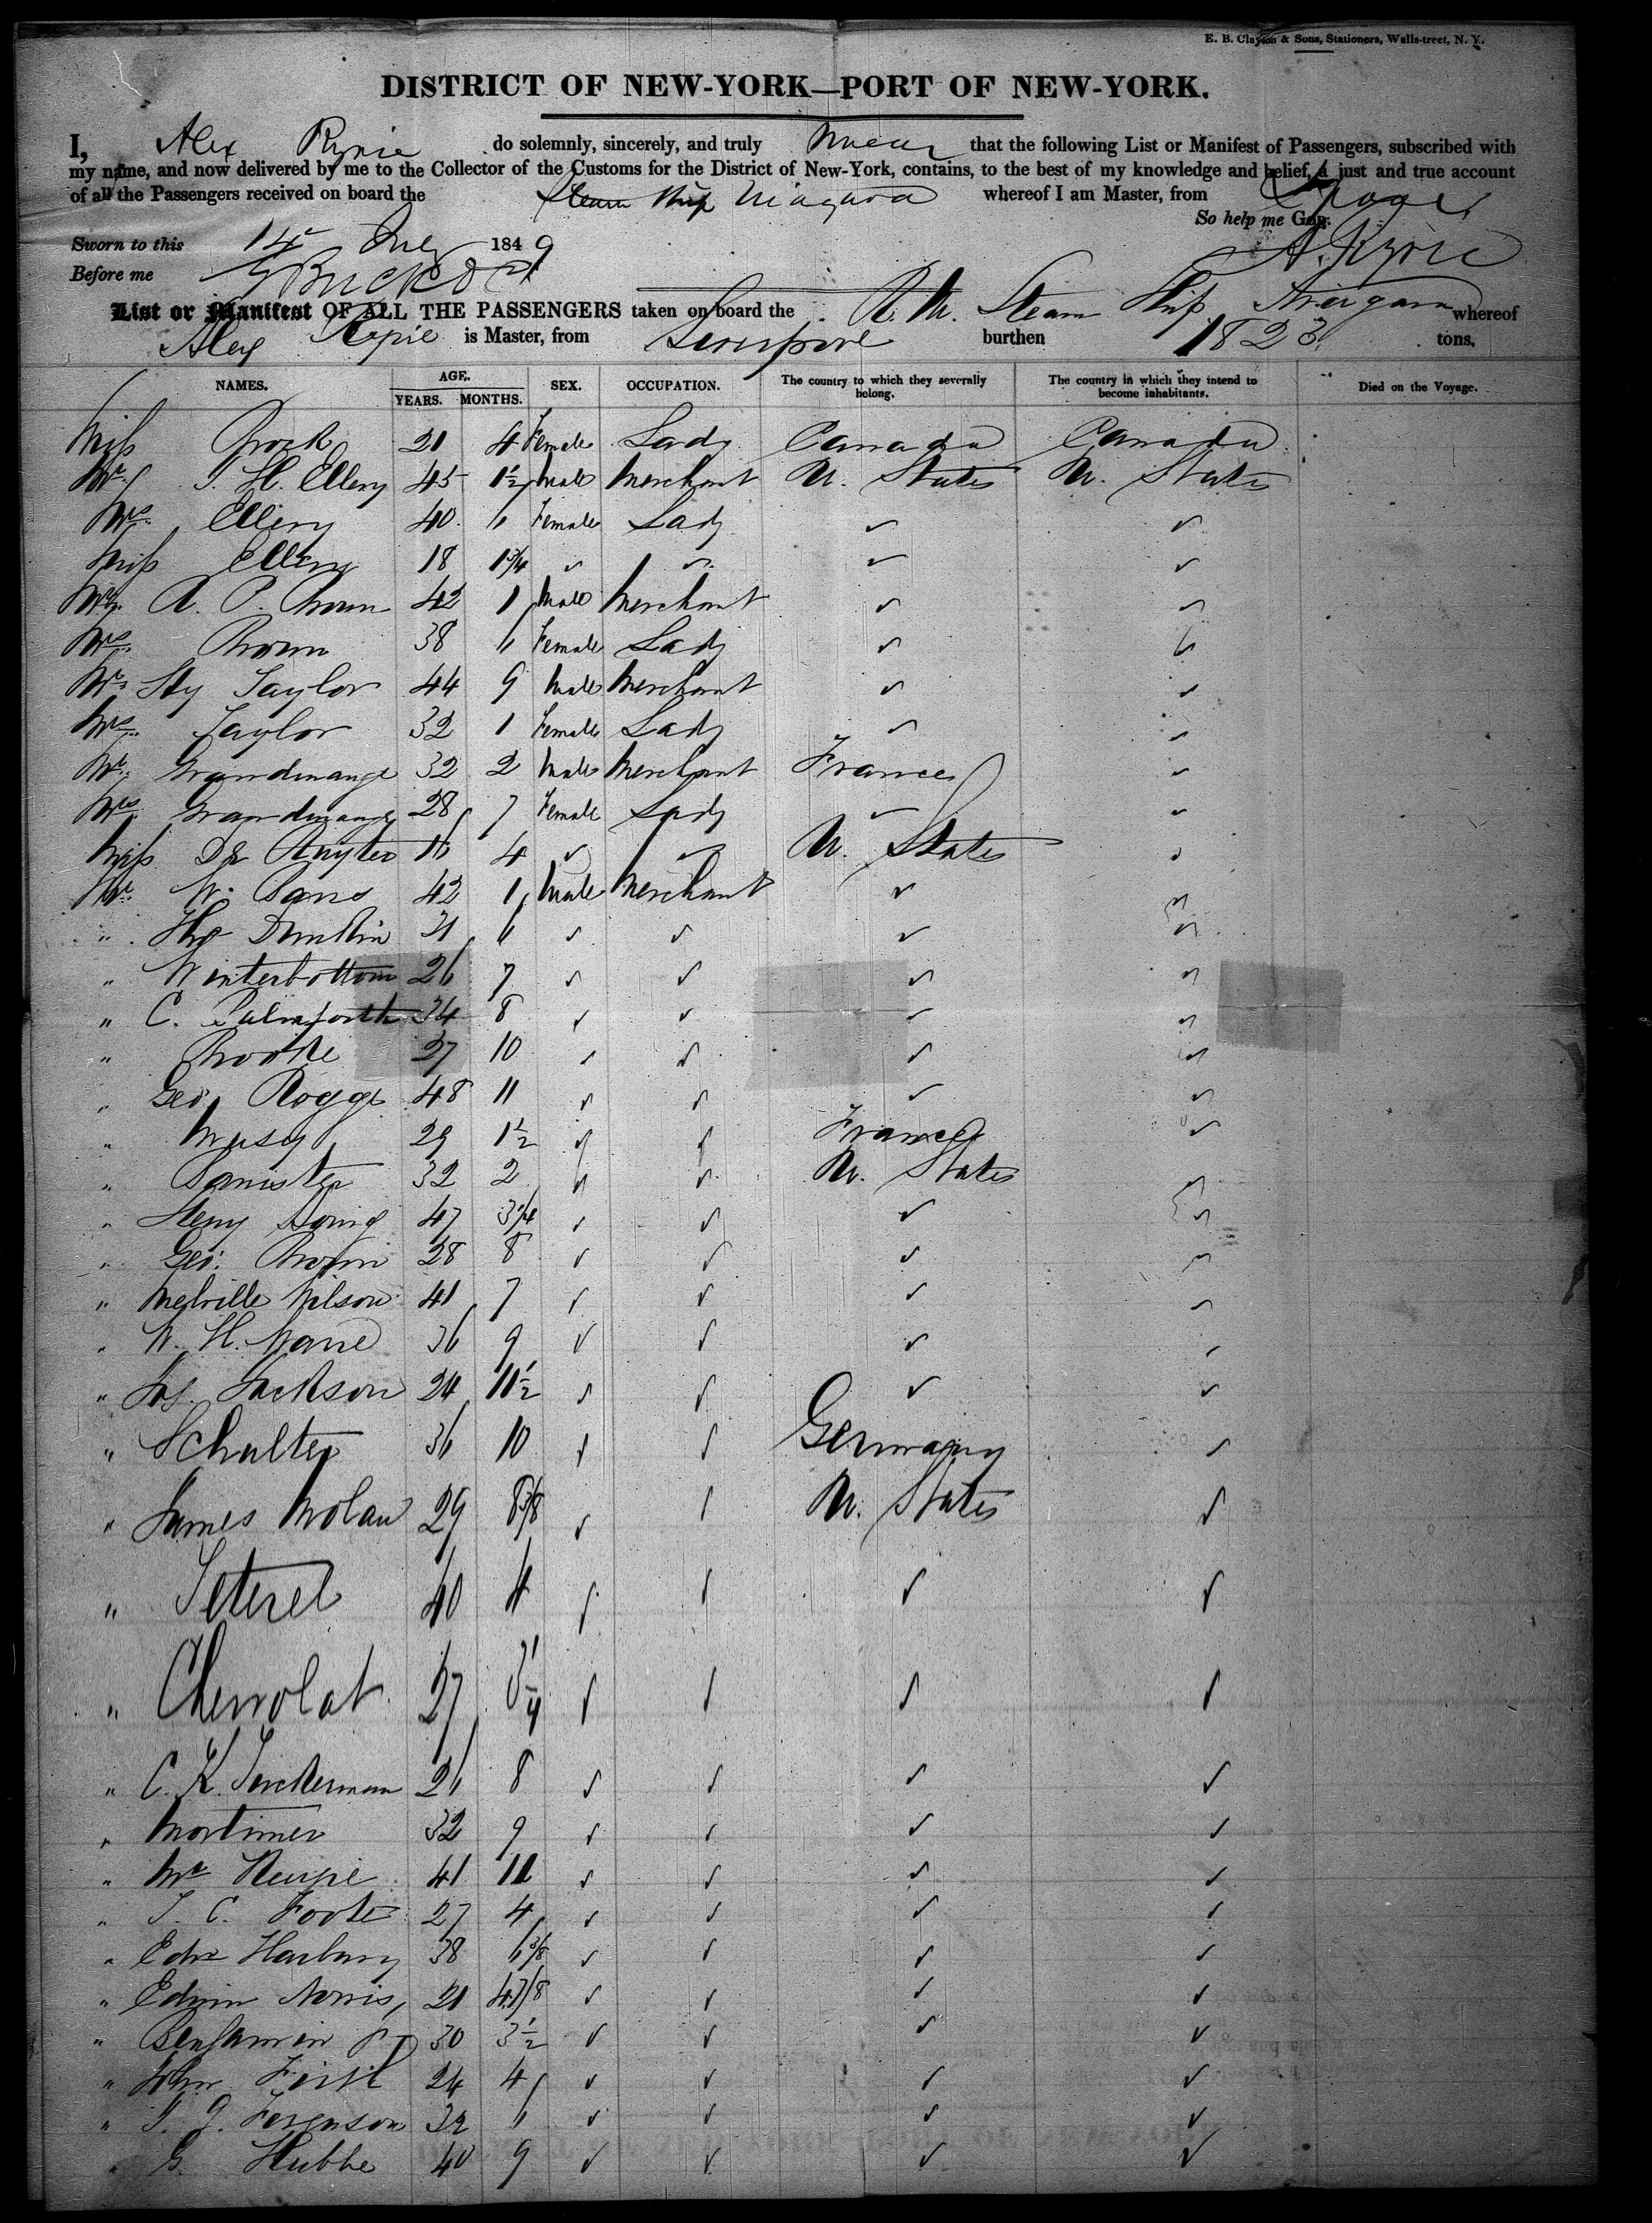 E. B. Clayton & Sons, Stationers, Walls-treet, N. Y.
DISTRICT OF NEW-YORK—PORT OF NEW-YORK.
I, Alex Ryrie do solemnly, sincerely, and truly swear that the following List or Manifest of Passengers, subscribed with
my name, and now delivered by me to the Collector of the Customs for the District of New-York, contains, to the best of my knowledge and belief, a just and true account
of all the Passengers received on board the Steam Ship Niagara whereof I am Master, from
So help me God.
Sworn to this 14 1849 A. Ryrie
Before me
List or Manifest OF ALL THE PASSENGERS taken on board the R. M. Steam Ship Niagara whereof
Alex Ryrie is Master, from Liverpool burthen 1823 tons.
NAMES. AGE. YEARS. MONTHS. SEX. OCCUPATION. The country to which they severally belong. The country in which they intend to become inhabitants. Died on the Voyage.
Miss Brock 21 4 Female Lady Canada Canada
Mr. J. H. Ellery 45 1½ Male Merchant U. States U. States
Mrs. Ellery 40 Female Lady ✓ ✓
Miss Ellery 18 1¾ ✓ ✓ ✓ ✓
Mr. A. P. Brown 42 1 Male Merchant ✓ ✓
Mrs. Brown 38 Female Lady ✓ ✓
Mr. Hy Taylor 44 9 Male Merchant ✓ ✓
Mrs. Taylor 32 1 Female Lady ✓ ✓
Mr. Grandmange 32 2 Male Merchant France ✓
Mrs. Grandmange 28 7 Female Lady ✓ ✓
Miss De Ruyter 16 4 ✓ ✓ U. States ✓
Mr. W. 42 1 Male Merchant ✓ ✓
" 31 6 ✓ ✓ ✓ ✓
" Winterbottom 26 7 ✓ ✓ ✓ ✓
" C. Pulmforth 34 8 ✓ ✓ ✓ ✓
" Brooke 27 10 ✓ ✓ ✓ ✓
" Geo. Rogge 48 11 ✓ ✓ ✓ ✓
" 29 1½ ✓ ✓ France ✓
" Banister 32 2 ✓ ✓ U. States ✓
" Heny 47 3¼ ✓ ✓ ✓ ✓
" Geo. Brown 28 8 ✓ ✓ ✓ ✓
" Melville Wilson 41 7 ✓ ✓ ✓ ✓
" W. H. 36 9 ✓ ✓ ✓ ✓
" Jas. Jackson 24 11½ ✓ ✓ ✓ ✓
" Schulter 36 10 ✓ ✓ Germany ✓
" James Nolan 29 8⅜ ✓ ✓ U. States ✓
" Teterel 40 4 ✓ ✓ ✓ ✓
" Chevrolat 27 3¼ ✓ ✓ ✓ ✓
" C. K. Tuckerman 26 8 ✓ ✓ ✓ ✓
" Mortimer 32 9 ✓ ✓ ✓ ✓
" 41 ✓ ✓ ✓ ✓
" T. C. Foote 27 4 ✓ ✓ ✓ ✓
" Edwd 38 6⅜ ✓ ✓ ✓ ✓
" Edwin Norris 21 4⅞ ✓ ✓ ✓ ✓
" Benjamin Jr 30 3½ ✓ ✓ ✓ ✓
" John Firth 24 4 ✓ ✓ ✓ ✓
" Ferguson 32 6 ✓ ✓ ✓ ✓
" G. Hubbe 40 9 ✓ ✓ ✓ ✓